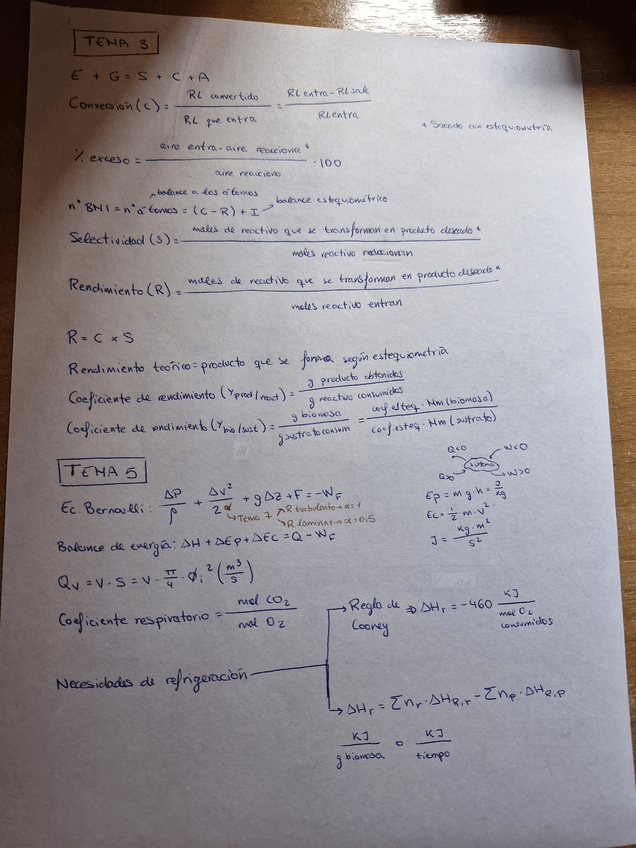 TEMA 3
E + G = S + C + A
Conversión (c) = RL convertido / RL que entra = RL entra - RL sale / RL entra
* Sacado con estequiometría
% exceso = aire entra - aire reacciona * / aire reacciona · 100
balance a los átomos
balance estequiométrico
nº BMI = nº átomos = (C - R) + I
Selectividad (S) = moles de reactivo que se transforman en producto deseado * / moles reactivo reaccionan
Rendimiento (R) = moles de reactivo que se transforman en producto deseado * / moles reactivo entran
R = C x S
Rendimiento teórico = producto que se forma según estequiometría
Coeficiente de rendimiento (Y prod/react) = g producto obtenidos / g reactivo consumidos
Coeficiente de rendimiento (Y bio/sust) = g biomasa / g sustrato consum = coef. esteq. · Mm (biomasa) / coef. esteq. · Mm (sustrato)
TEMA 5
Q<0 W<0
sistema
Q>0 W>0
Ec. Bernoulli: ΔP/ρ + Δv²/2α + gΔz + F = -W_F
Tema 7 R turbulento → α = 1
R laminar → α = 0,5
Ep = m·g·h = J/kg
Ec = 1/2 m·v²
J = kg·m²/s²
Balance de energía: ΔH + ΔEp + ΔEc = Q - W_F
Qv = v · S = v · π/4 · ϕi² (m³/s)
Coeficiente respiratorio = mol CO2 / mol O2
Regla de Cooney ⇒ ΔHr = -460 KJ / mol O2 consumidos
Necesidades de refrigeración
ΔHr = Σnr · ΔHR,r - Σnp · ΔHR,p
KJ / g biomasa o KJ / tiempo